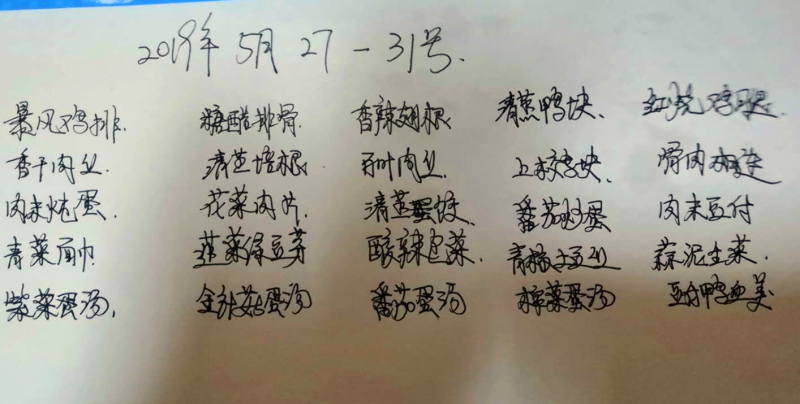 2019年5月27-31号.
暴风鸡排. 糖醋排骨 香辣翅根 清蒸鸭块. 红烧鸡腿
香干肉丝. 清芝培根 百叶肉丝 上校鸡块. 骨肉相连
肉末炖蛋. 花菜肉片. 清蒸蛋饺 番茄炒蛋 肉末豆付
青菜面巾 韭菜绿豆芽 酸辣包菜. 青椒土豆丝 蒜泥生菜.
紫菜蛋汤, 金针菇蛋汤 番茄蛋汤 榨菜蛋汤 豆付鸭血羹